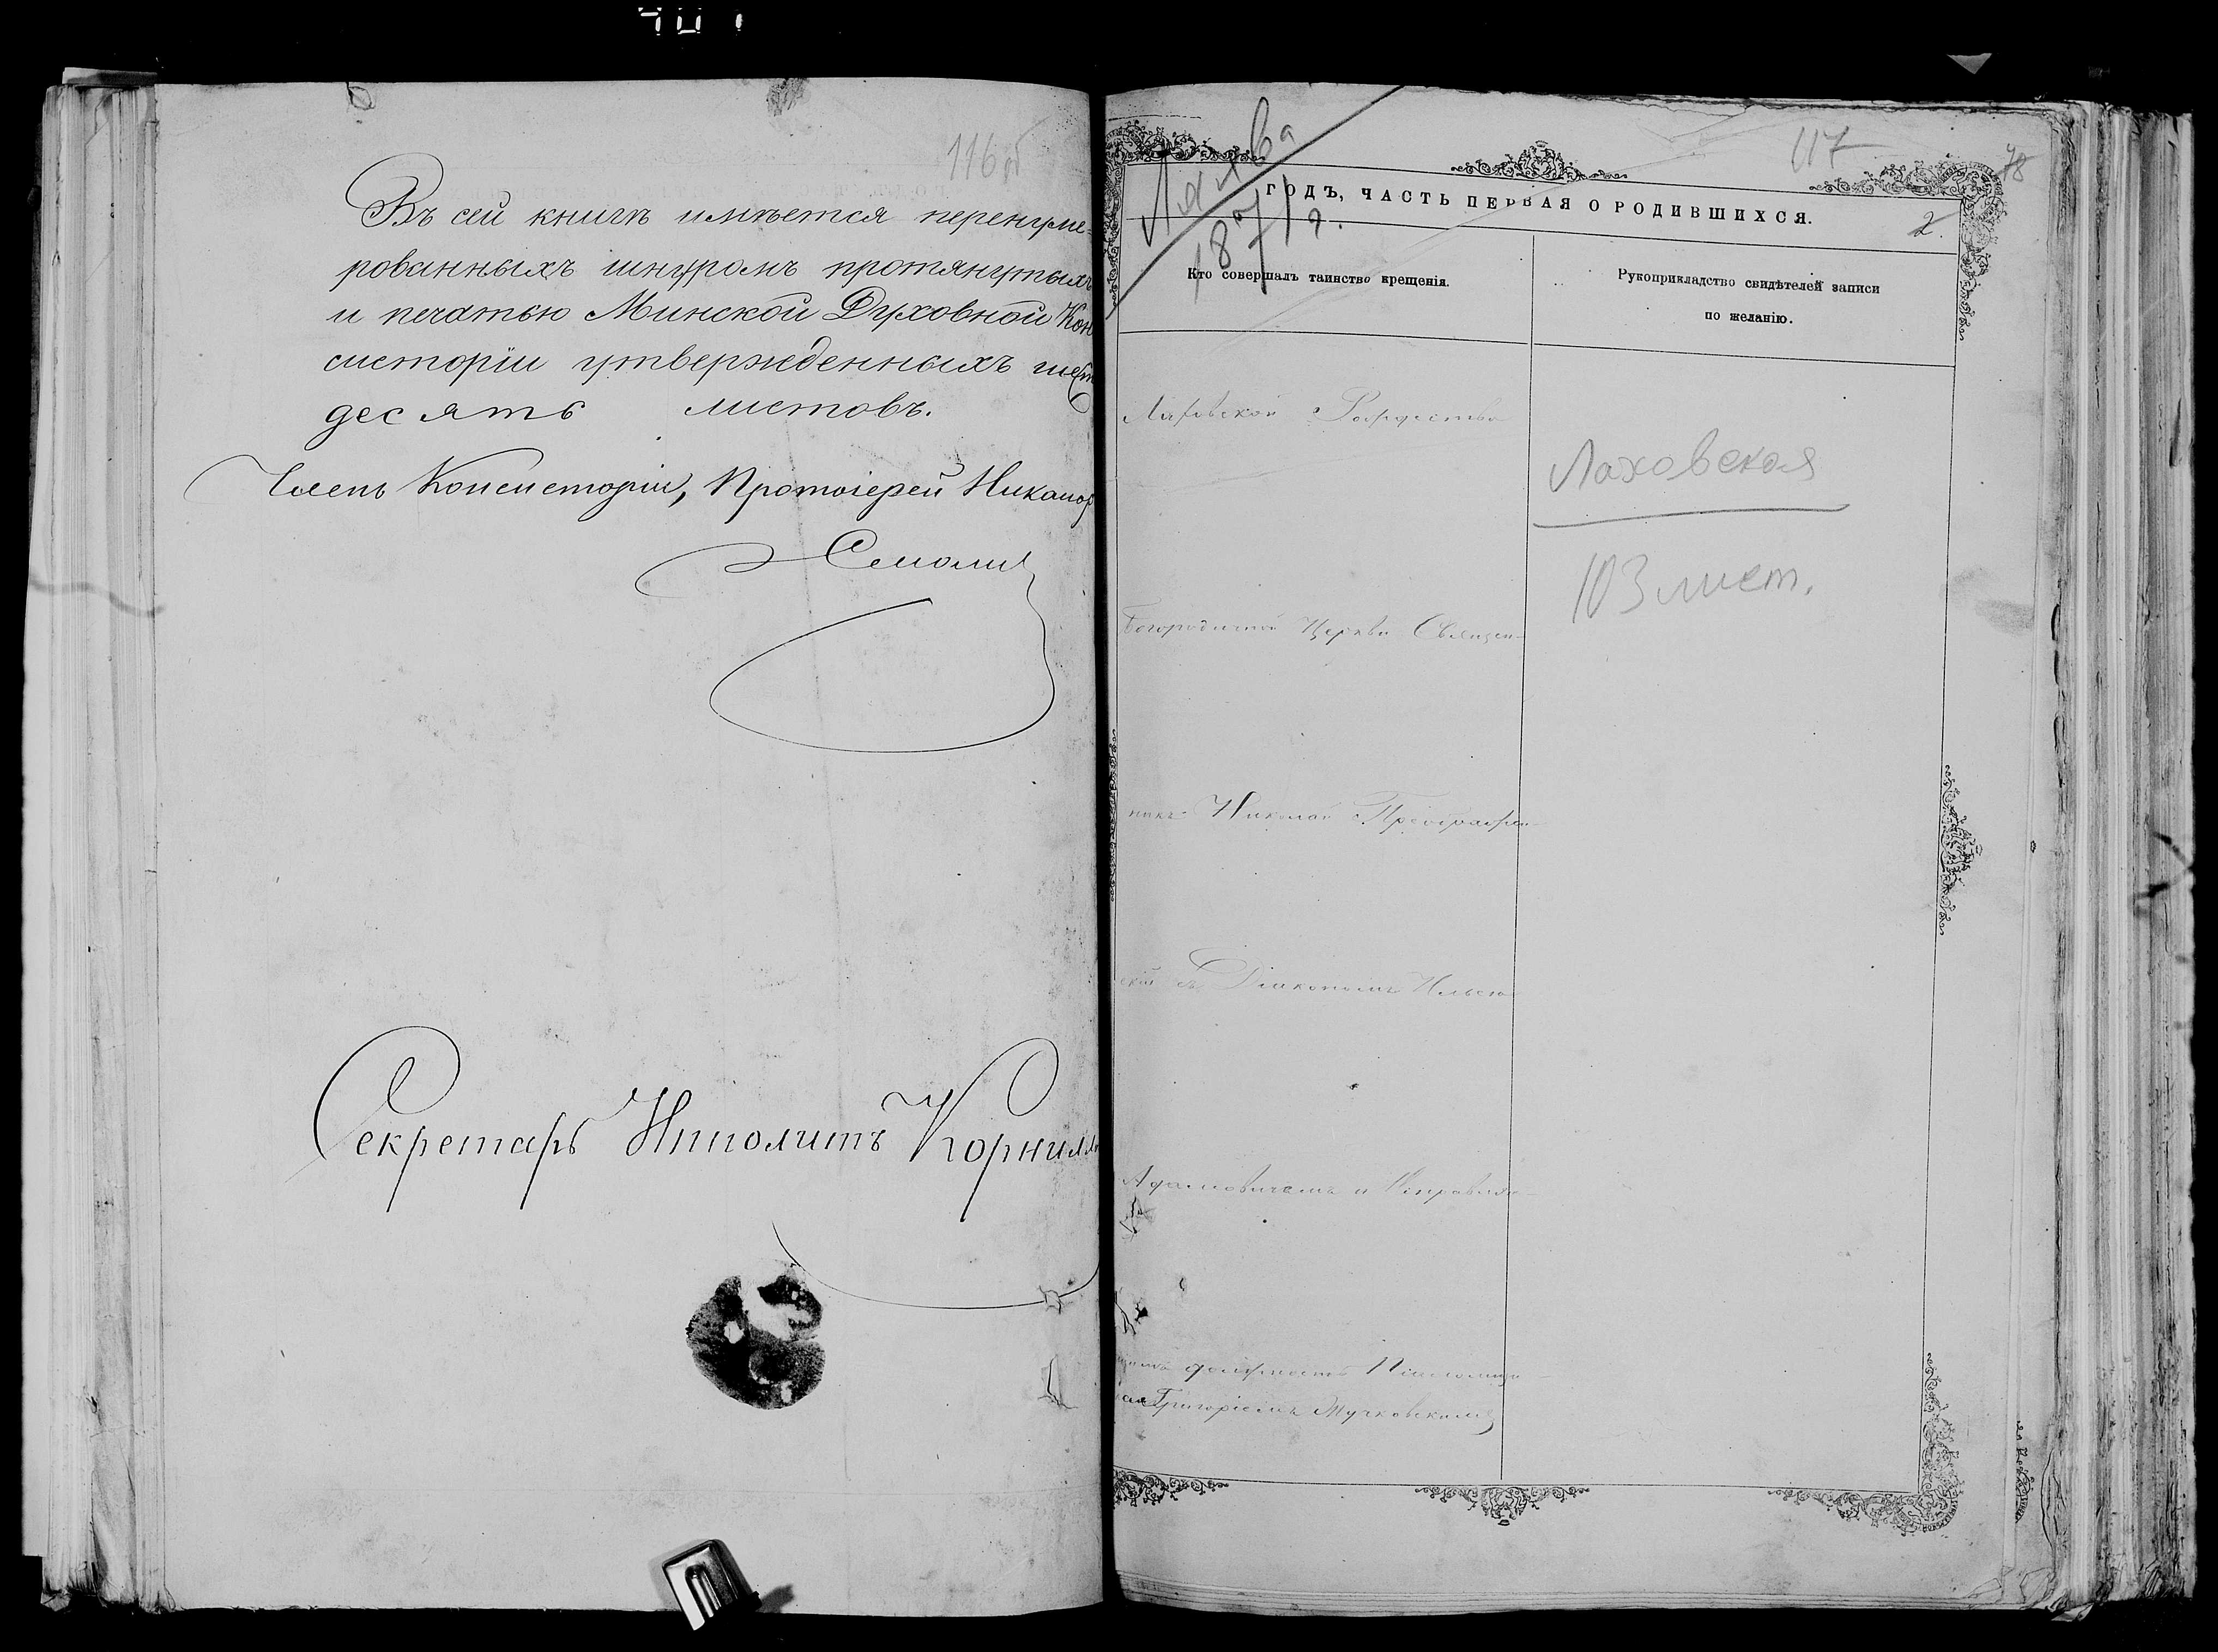 116 об
Въ сей книгѣ имѣется перенуме-
рованныхъ шнуромъ протянутыхъ
и печатью Минской Духовной Кон
систоріи утвержденныхъ шест
десять листовъ.
Членъ Консисторіи, Протоіерей Никанор
Смолич
Секретарь Ипполитъ Корнил
Ляхва
1871 г.
117
78
ГОДЪ, ЧАСТЬ ПЕРВАЯ О РОДИВШИХСЯ.
2.
Кто совершалъ таинство крещенія.
Рукоприкладство свидѣтелей записи
по желанію.
Ляховской Рождество
Богородичной Церкви Священ-
никъ Николай Преображен-
скій съ Діакономъ Ильею
Адамовичемъ и Исправляю-
щимъ должность Псаломщи-
ка Григоріемъ Жучковскимъ
Лаховская
103 лист.